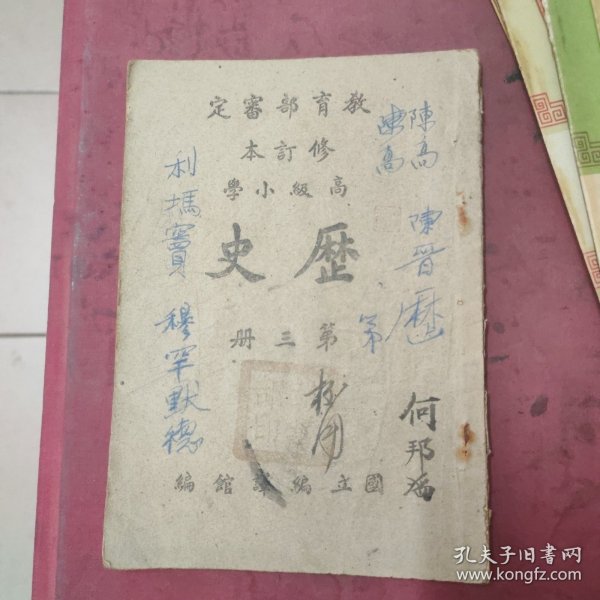 教育部審定
修訂本
高級小學
歷史
第三册
國立編譯館編
陳高
陳高
陳晋
歷
第
何邦
利瑪竇
穆罕默德
孔夫子旧书网
www.kongfz.com